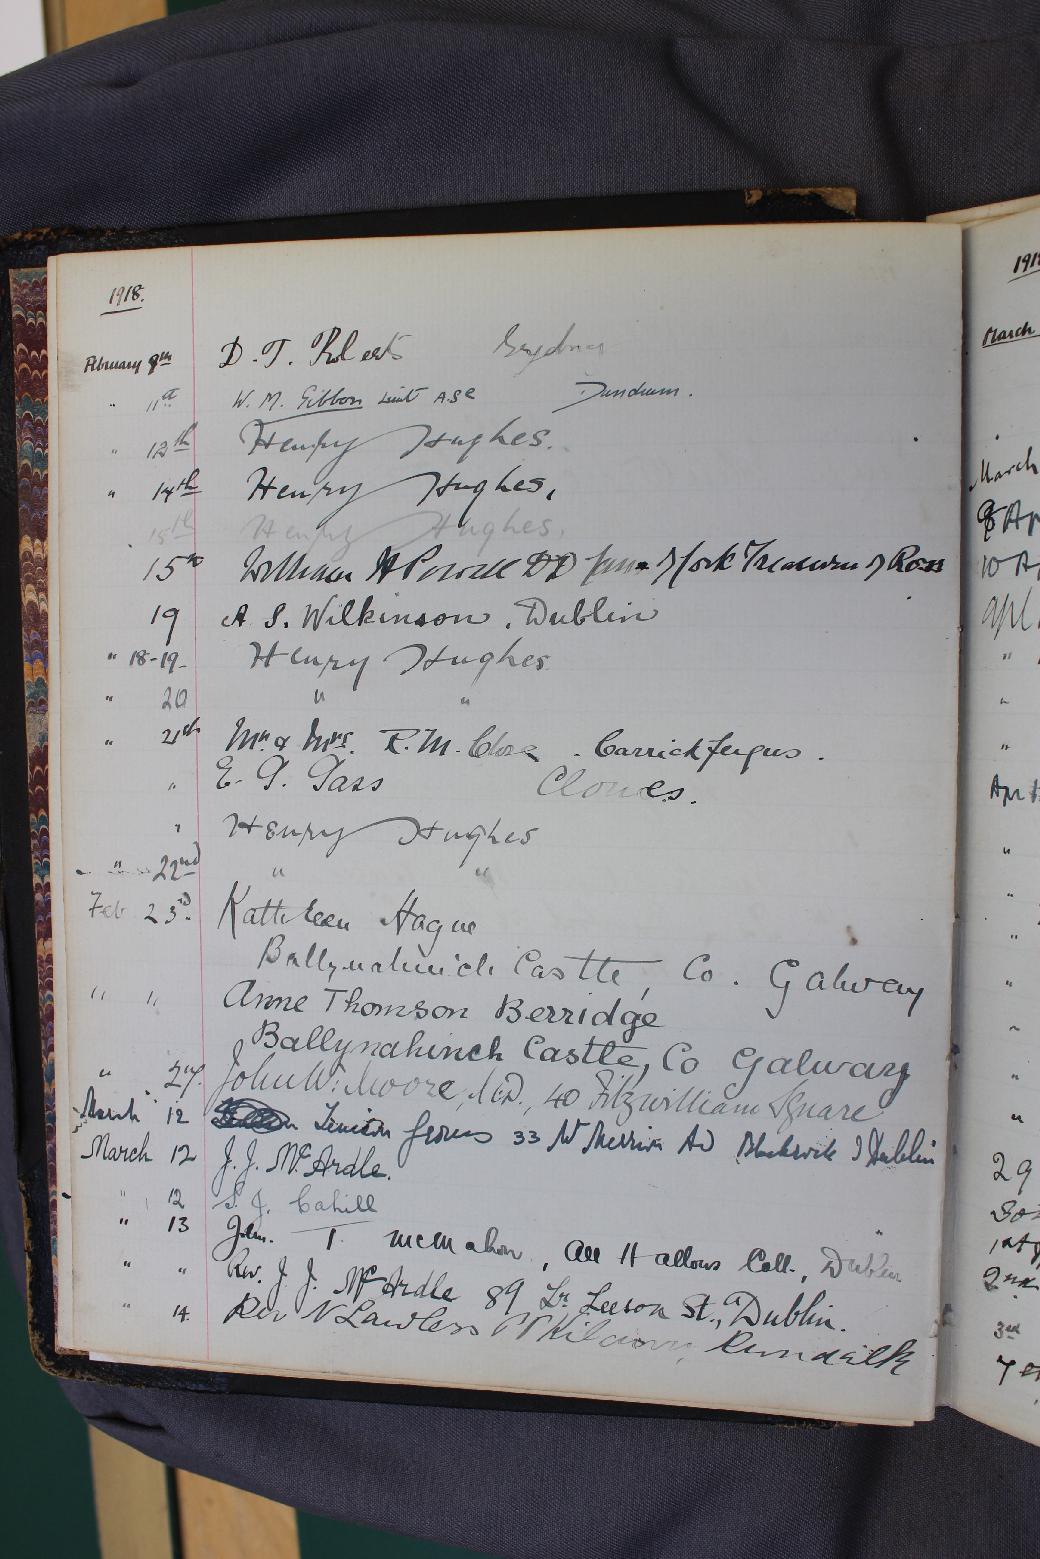 1918.
February 8th D. T. Roberts
" 11th W. M. Gibbon Lieut A.S.C Dundrum.
" 12th Henry Hughes.
" 14th Henry Hughes,
" 15th Henry Hughes,
15th William H Powell DD of Cork Treasurer of Ross
19 A. S. Wilkinson, Dublin
" 18-19- Henry Hughes
" 20 " "
" 21st Mr. & Mrs. R. M. Close. Carrickfergus.
" E. G. Tass Clones.
" Henry Hughes
" 22nd " "
Feb 23rd. Kathleen Hague
Ballynahinch Castle, Co. Galway
" " Anne Thomson Berridge
Ballynahinch Castle, Co Galway
" 27. John W. Moore, M.D., 40 Fitzwilliam Square
March 12 33 Nt Merrion Av Blackrock Dublin
March 12 J. J. McArdle.
" 12 S. J. Cahill
" 13 John. T. McMahon, All Hallows Coll., Dublin
" " Rev. J. J. McArdle 89 Lr Leeson St., Dublin.
" 14. Rev N Lawless PP Kilcurry, Dundalk
1918
March
March
8 Ap
10 A
Apl
"
"
"
Apr
"
"
"
"
"
"
29
30
1st
2nd
3rd
7